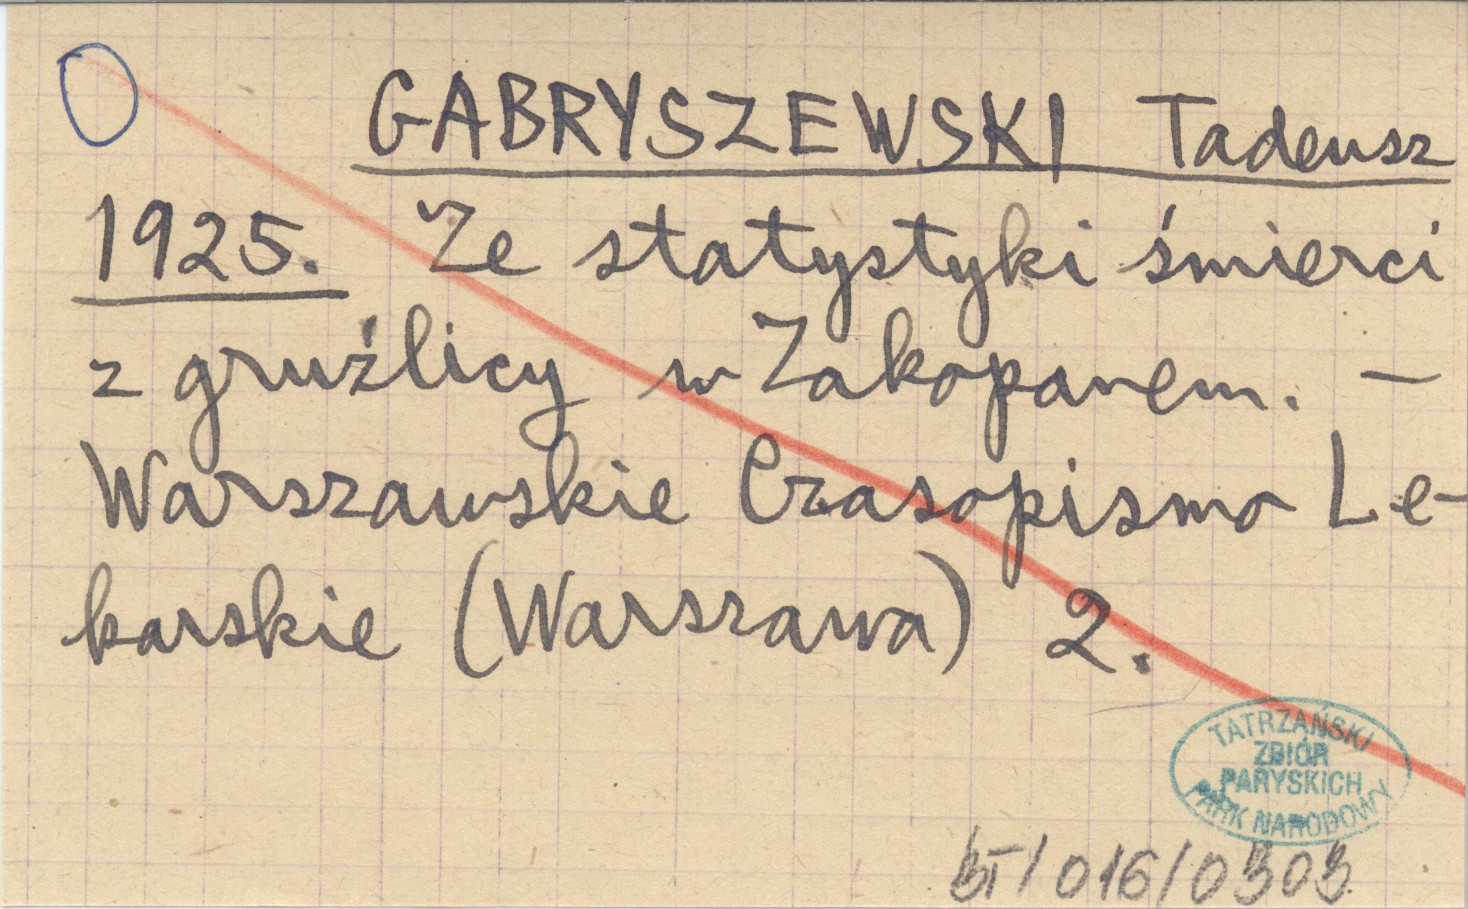 GABRYSZEWSKI Tadeusz
1925. Ze statystyki śmierci
z gruźlicy w Zakopanem. –
Warszawskie Czasopismo Le-
karskie (Warszawa) 2.
TATRZAŃSKI
ZBIÓR
PARYSKICH
PARK NARODOWY
BT/016/0303